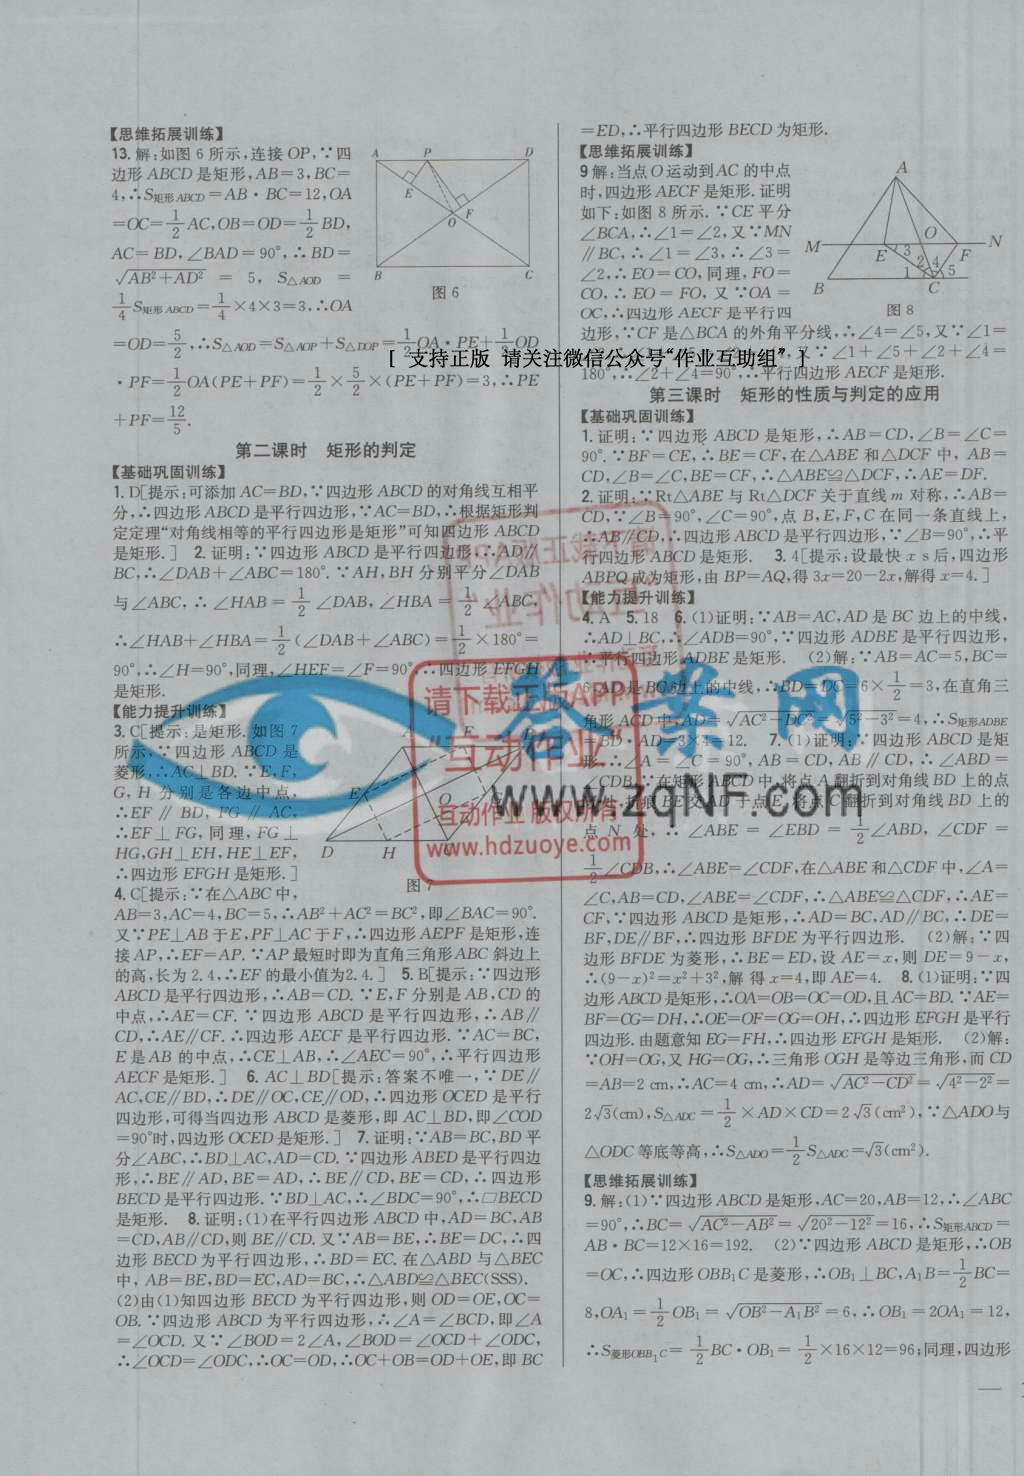 【思维拓展训练】
13.解:如图6所示,连接OP,∵四
边形ABCD是矩形,AB=3,BC=
4,∴S矩形ABCD=AB·BC=12,OA
=OC=1/2AC,OB=OD=1/2BD,
AC=BD,∠BAD=90°,∴BD=
√AB²+AD² = 5, S△AOD =
1/4S矩形ABCD=1/4×4×3=3,∴OA
=OD=5/2,∴S△AOD=S△AOP+S△DOP=1/2OA·PE+1/2OD
·PF=1/2OA(PE+PF)=1/2×5/2×(PE+PF)=3,∴PE
+PF=12/5.
A P D
E F
O
B C
图6
第二课时 矩形的判定
【基础巩固训练】
1.D[提示:可添加AC=BD,∵四边形ABCD的对角线互相平
分,∴四边形ABCD是平行四边形,∵AC=BD,∴根据矩形判
定定理“对角线相等的平行四边形是矩形”可知四边形ABCD
是矩形.] 2.证明:∵四边形ABCD是平行四边形,∴AD∥
BC,∴∠DAB+∠ABC=180°.∵AH,BH分别平分∠DAB
与∠ABC,∴∠HAB=1/2∠DAB,∠HBA=1/2∠ABC,
∴∠HAB+∠HBA=1/2(∠DAB+∠ABC)=1/2×180°=
90°,∴∠H=90°,同理,∠HEF=∠F=90°,∴四边形EFGH
是矩形.
【能力提升训练】
3.C[提示:是矩形.如图7
所示,∵四边形ABCD是
菱形,∴AC⊥BD.∵E,F,
G,H分别是各边中点,
∴EF∥BD,FG∥AC,
∴EF⊥FG,同理,FG⊥
HG,GH⊥EH,HE⊥EF,
∴四边形EFGH是矩形.]
D H
图7
4.C[提示:∵在△ABC中,
AB=3,AC=4,BC=5,∴AB²+AC²=BC²,即∠BAC=90°.
又∵PE⊥AB于E,PF⊥AC于F,∴四边形AEPF是矩形,连
接AP,∴EF=AP.∵AP最短时即为直角三角形ABC斜边上
的高,长为2.4,∴EF的最小值为2.4.] 5.B[提示:∵四边形
ABCD是平行四边形,∴AB=CD.∵E,F分别是AB,CD的
中点,∴AE=CF.∵四边形ABCD是平行四边形,∴AB∥
CD,∴AE∥CF.∴四边形AECF是平行四边形.∵AC=BC,
E是AB的中点,∴CE⊥AB,∴∠AEC=90°,∴平行四边形
AECF是矩形.] 6.AC⊥BD[提示:答案不唯一,∵DE∥
AC,CE∥BD,∴DE∥OC,CE∥OD,∴四边形OCED是平行
四边形,可得当四边形ABCD是菱形,即AC⊥BD,即∠COD
=90°时,四边形OCED是矩形.] 7.证明:∵AB=BC,BD平
分∠ABC,∴BD⊥AC,AD=CD.∵四边形ABED是平行四边
形,∴BE∥AD,BE=AD,∴BE∥CD,BE=CD,∴四边形
BECD是平行四边形.∵BD⊥AC,∴∠BDC=90°,∴▱BECD
是矩形. 8.证明:(1)在平行四边形ABCD中,AD=BC,AB
=CD,AB∥CD,则BE∥CD.又∵AB=BE,∴BE=DC,∴四
边形BECD为平行四边形,∴BD=EC.在△ABD与△BEC
中,AB=BE,BD=EC,AD=BC,∴△ABD≌△BEC(SSS).
(2)由(1)知四边形BECD为平行四边形,则OD=OE,OC=
OB.∵四边形ABCD为平行四边形,∴∠A=∠BCD,即∠A
=∠OCD.又∵∠BOD=2∠A,∠BOD=∠OCD+∠ODC,
∴∠OCD=∠ODC,∴OC=OD,∴OC+OB=OD+OE,即BC
=ED,∴平行四边形BECD为矩形.
【思维拓展训练】
9解:当点O运动到AC的中点
时,四边形AECF是矩形.证明
如下:如图8所示.∵CE平分
∠BCA,∴∠1=∠2,又∵MN
∥BC,∴∠1=∠3,∴∠3=
∠2,∴EO=CO,同理,FO=
CO,∴EO=FO,又∵OA=
OC,∴四边形AECF是平行四
A
M E O F N
3 2 4 1 5
B C
图8
边形,∵CF是△BCA的外角平分线,∴∠4=∠5,又∵∠1=
[ 支持正版 请关注微信公众号“作业互助组” ]
180°,∴∠2+∠4=90°,∴平行四边形AECF是矩形.
第三课时 矩形的性质与判定的应用
【基础巩固训练】
1.证明:∵四边形ABCD是矩形,∴AB=CD,∠B=∠C=
90°.∵BF=CE,∴BE=CF,在△ABE和△DCF中,AB=
CD,∠B=∠C,BE=CF,∴△ABE≌△DCF,∴AE=DF.
2.证明:∵Rt△ABE与Rt△DCF关于直线m对称,∴AB=
CD,∵∠B=90°,∠C=90°,点B,E,F,C在同一条直线上,
∴AB∥CD,∴四边形ABCD是平行四边形,∵∠B=90°,∴平
行四边形ABCD是矩形. 3.4[提示:设最快x s后,四边形
ABPQ成为矩形,由BP=AQ,得3x=20-2x,解得x=4.]
【能力提升训练】
4.A 5.18 6.(1)证明:∵AB=AC,AD是BC边上的中线,
∴AD⊥BC,∴∠ADB=90°,∵四边形ADBE是平行四边形,
∴平行四边形ADBE是矩形. (2)解:∵AB=AC=5,BC=
6,AD是BC边上的中线,∴BD=DC=6×1/2=3,在直角三
角形ACD中,AD=√AC²-DC²=√5²-3²=4,∴S矩形ADBE
=BD·AD=3×4=12. 7.(1)证明:∵四边形ABCD是矩
形,∴∠A=∠C=90°,AB=CD,AB∥CD,∴∠ABD=
∠CDB,∵在矩形ABCD中,将点A翻折到对角线BD上的点
点N处,∴∠ABE=∠EBD=1/2∠ABD,∠CDF=
1/2∠CDB,∴∠ABE=∠CDF,在△ABE和△CDF中,∠A=
∠C,AB=CD,∠ABE=∠CDF,∴△ABE≌△CDF,∴AE=
CF,∵四边形ABCD是矩形,∴AD=BC,AD∥BC,∴DE=
BF,DE∥BF,∴四边形BFDE为平行四边形. (2)解:∵四
边形BFDE为菱形,∴BE=ED,设AE=x,则DE=9-x,
∴(9-x)²=x²+3²,解得x=4,即AE=4. 8.(1)证明:∵四
边形ABCD是矩形,∴OA=OB=OC=OD,且AC=BD.∵AE=
BF=CG=DH,∴OE=OF=OG=OH,∴四边形EFGH是平行
四边形.由题意知EG=FH,∴四边形EFGH是矩形. (2)解:
∵OH=OG,又HG=OG,∴三角形OGH是等边三角形,而CD
=AB=2 cm,∴AC=4 cm,∴AD=√AC²-CD²=√4²-2²=
2√3(cm),S△ADC=1/2×AD×CD=2√3(cm²),∵△ADO与
△ODC等底等高,∴S△ADO=1/2S△ADC=√3(cm²).
【思维拓展训练】
9.解:(1)∵四边形ABCD是矩形,AC=20,AB=12,∴∠ABC
=90°,∴BC=√AC²-AB²=√20²-12²=16,∴S矩形ABCD=
AB·BC=12×16=192. (2)∵四边形ABCD是矩形,∴OB
=OC,∴四边形OBB₁C是菱形,∴OB₁⊥BC,A₁B=1/2BC=
8,OA₁=1/2OB₁=√OB²-A₁B²=6,∴OB₁=2OA₁=12,
∴S菱形OBB₁C=1/2BC·OB₁=1/2×16×12=96;同理,四边形
请下载正版APP
“互动作业”
互动作业 版权所有
www.hdzuoye.com
答案网
www.zqNF.com